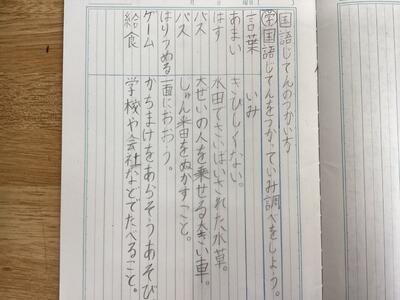 月 日 曜日
国語じてんのつかい方
㊫国語じてんをつかっていみ調べをしよう。
言葉 いみ
あまい きびしくない。
はす 水田でさいばいされた水草。
バス 大せいの人を乗せる大きい車。
パス しゅん番をぬかすこと。
はりつめる 一面におおう。
ゲーム かちまけをあらそうあそび
給食 学校や会社などでたべること。